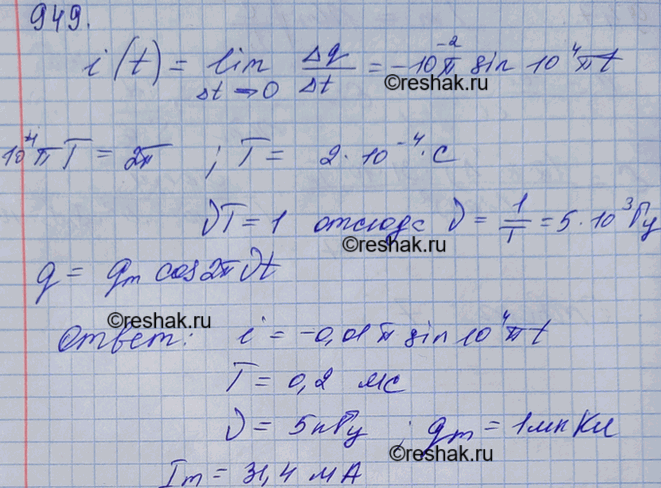 949.
i(t) = lim Δt→0 Δq/Δt = -10⁻²π sin 10⁴πt
©reshak.ru
10⁴πT = 2π ; T = 2·10⁻⁴·с
©reshak.ru
νT = 1 отсюда ν = 1/T = 5·10³Гц
©reshak.ru
q = qm cos2πνt
©reshak.ru
Ответ: i = -0,01π sin 10⁴πt
T = 0,2 мс
ν = 5кГц ; qm = 1мкКл
©reshak.ru
Im = 31,4 мА